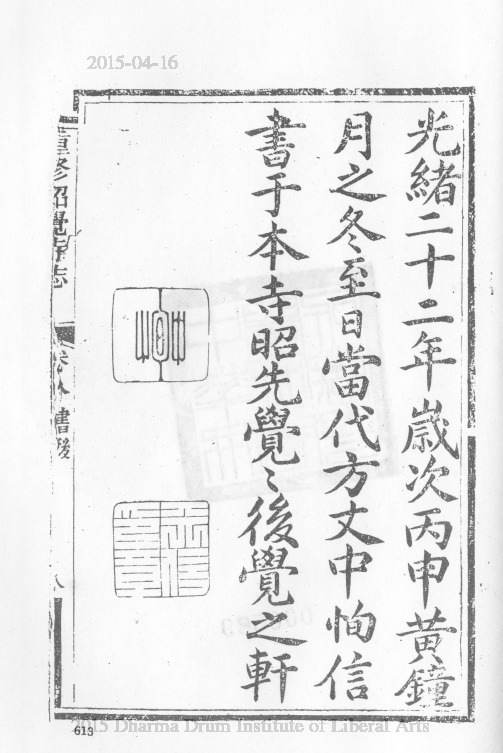 2015-04-16
光緒二十二年歲次丙申黃鐘
月之冬至日當代方丈中恂信
書于本寺昭先覺〻後覺之軒
重修昭覺寺志
書後
八
613
2015 Dharma Drum Institute of Liberal Arts